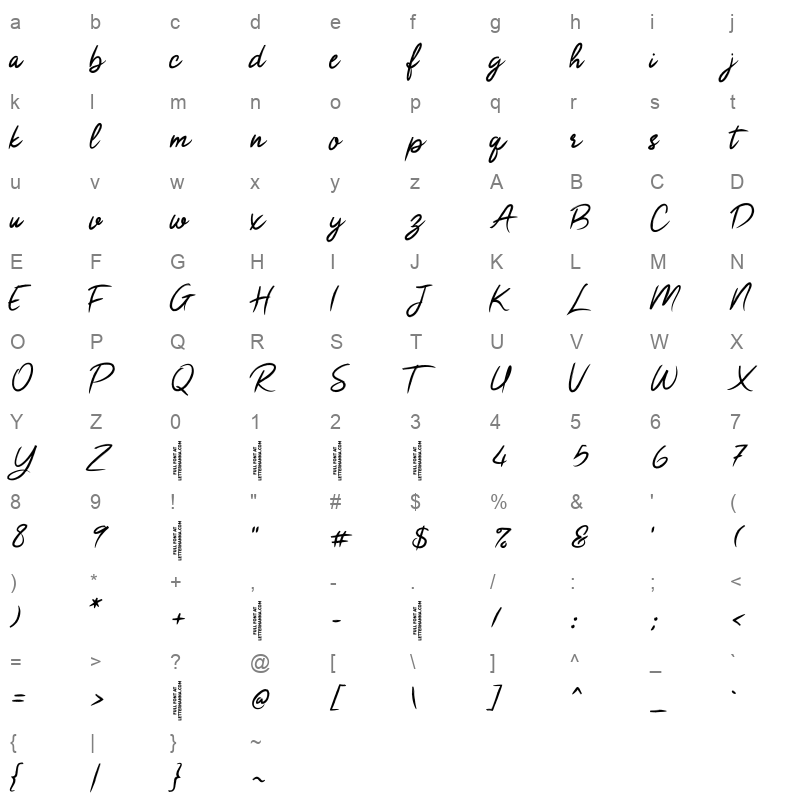 a b c d e f g h i j
a b c d e f g h i j
k l m n o p q r s t
k l m n o p q r s t
u v w x y z A B C D
u v w x y z A B C D
E F G H I J K L M N
E F G H I J K L M N
O P Q R S T U V W X
O P Q R S T U V W X
Y Z 0 1 2 3 4 5 6 7
Y Z FULL FONT AT LETTERHANNA.COM FULL FONT AT LETTERHANNA.COM FULL FONT AT LETTERHANNA.COM FULL FONT AT LETTERHANNA.COM 4 5 6 7
8 9 ! " # $ % & ' (
8 9 FULL FONT AT LETTERHANNA.COM " # $ % & ' (
) * + , - . / : ; <
) * + FULL FONT AT LETTERHANNA.COM - FULL FONT AT LETTERHANNA.COM / : ; <
= > ? @ [ \ ] ^ _ `
= > FULL FONT AT LETTERHANNA.COM @ [ \ ] ^ _ `
{ | } ~
{ | } ~